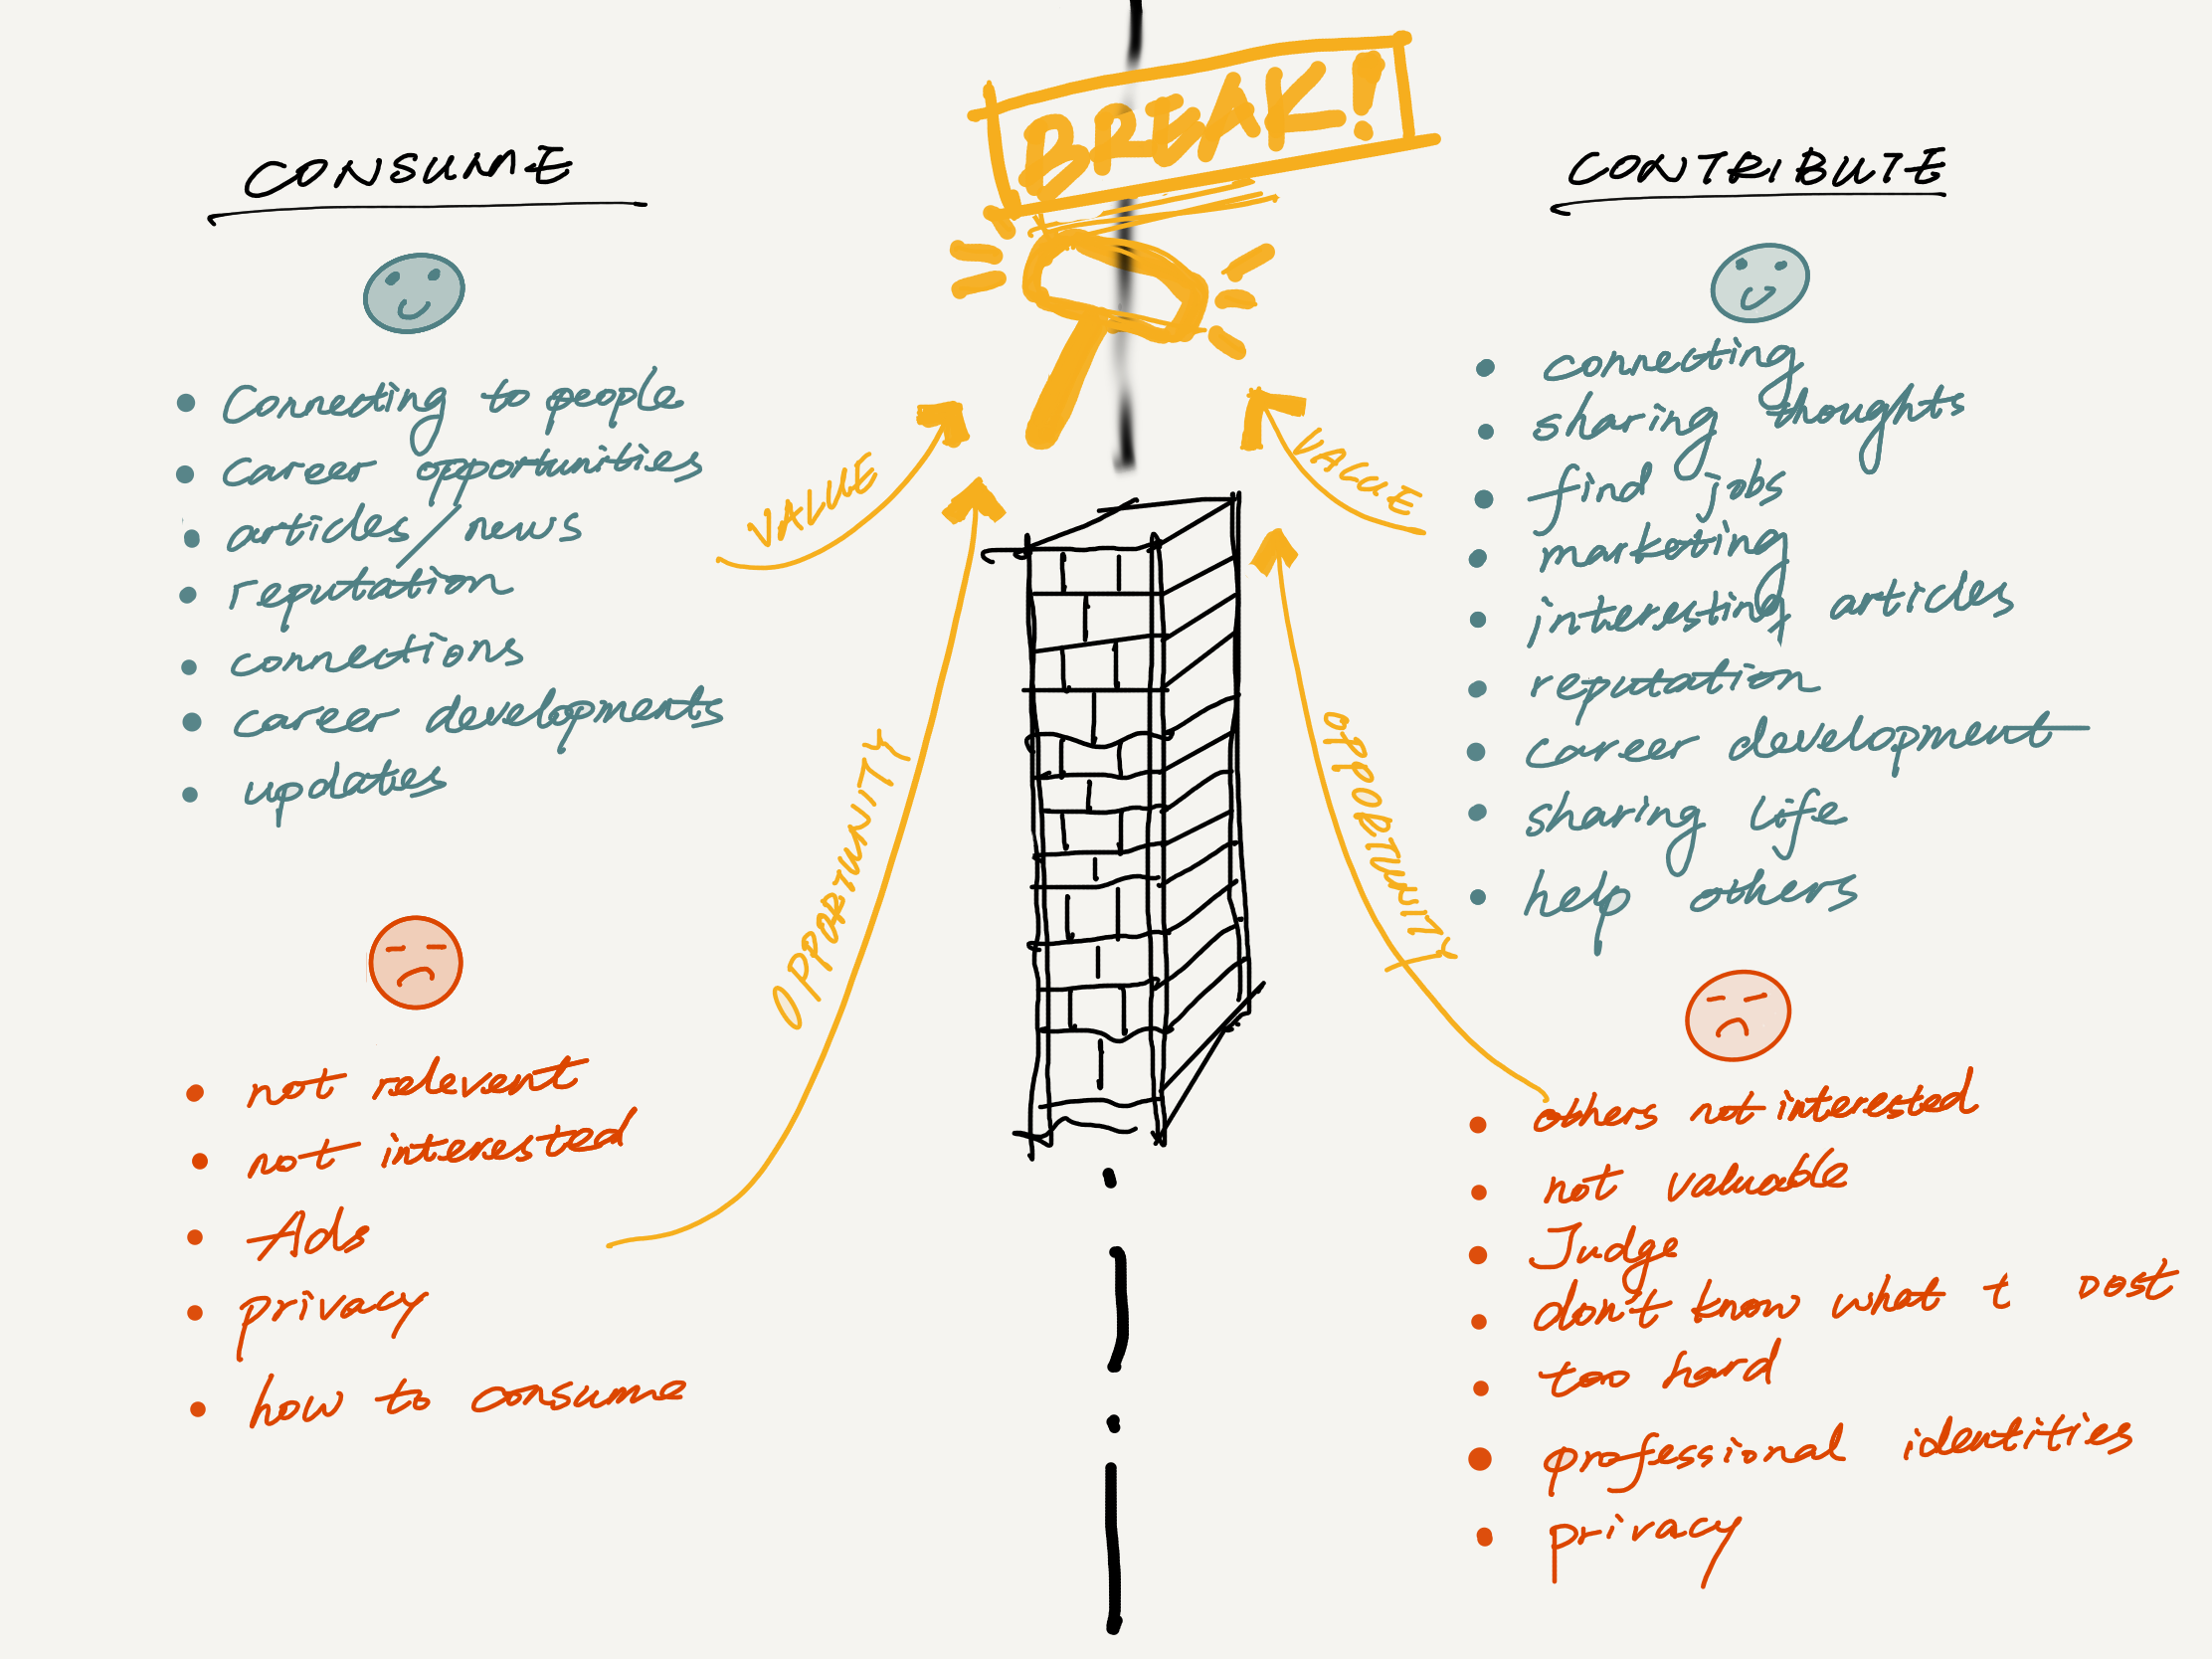 BREAK!
CONSUME
Connecting to people
career opportunities
articles/news
reputation
connections
career developments
updates
not relevent
not interested
Ads
privacy
how to consume
VALUE
OPPORTUNITY
VALUE
OPPORTUNITY
CONTRIBUTE
connecting
sharing thoughts
find jobs
marketing
interesting articles
reputation
career development
sharing life
help others
others not interested
not valuable
Judge
don't know what t ost
too hard
professional identities
privacy